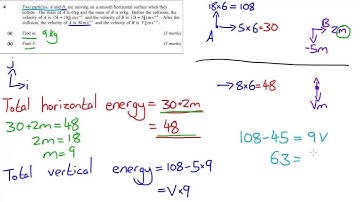 4 Two particles, A and B, are moving on a smooth horizontal surface when they
collide. The mass of A is 6 kg and the mass of B is m kg. Before the collision, the
velocity of A is (5i + 18j) m s⁻¹ and the velocity of B is (2i − 5j) m s⁻¹. After the
collision, the velocity of A is 8i m s⁻¹ and the velocity of B is V j m s⁻¹.
(a) Find m. 9 kg (3 marks)
(b) Find V. (3 marks)
j
i
18×6=108
A
5×6=30
B
2m
-5m
8×6=48
Vm
Total horizontal energy = 30+2m
= 48
30+2m=48
2m=18
m=9
Total vertical energy = 108-5×9
= V×9
108-45=9V
63=